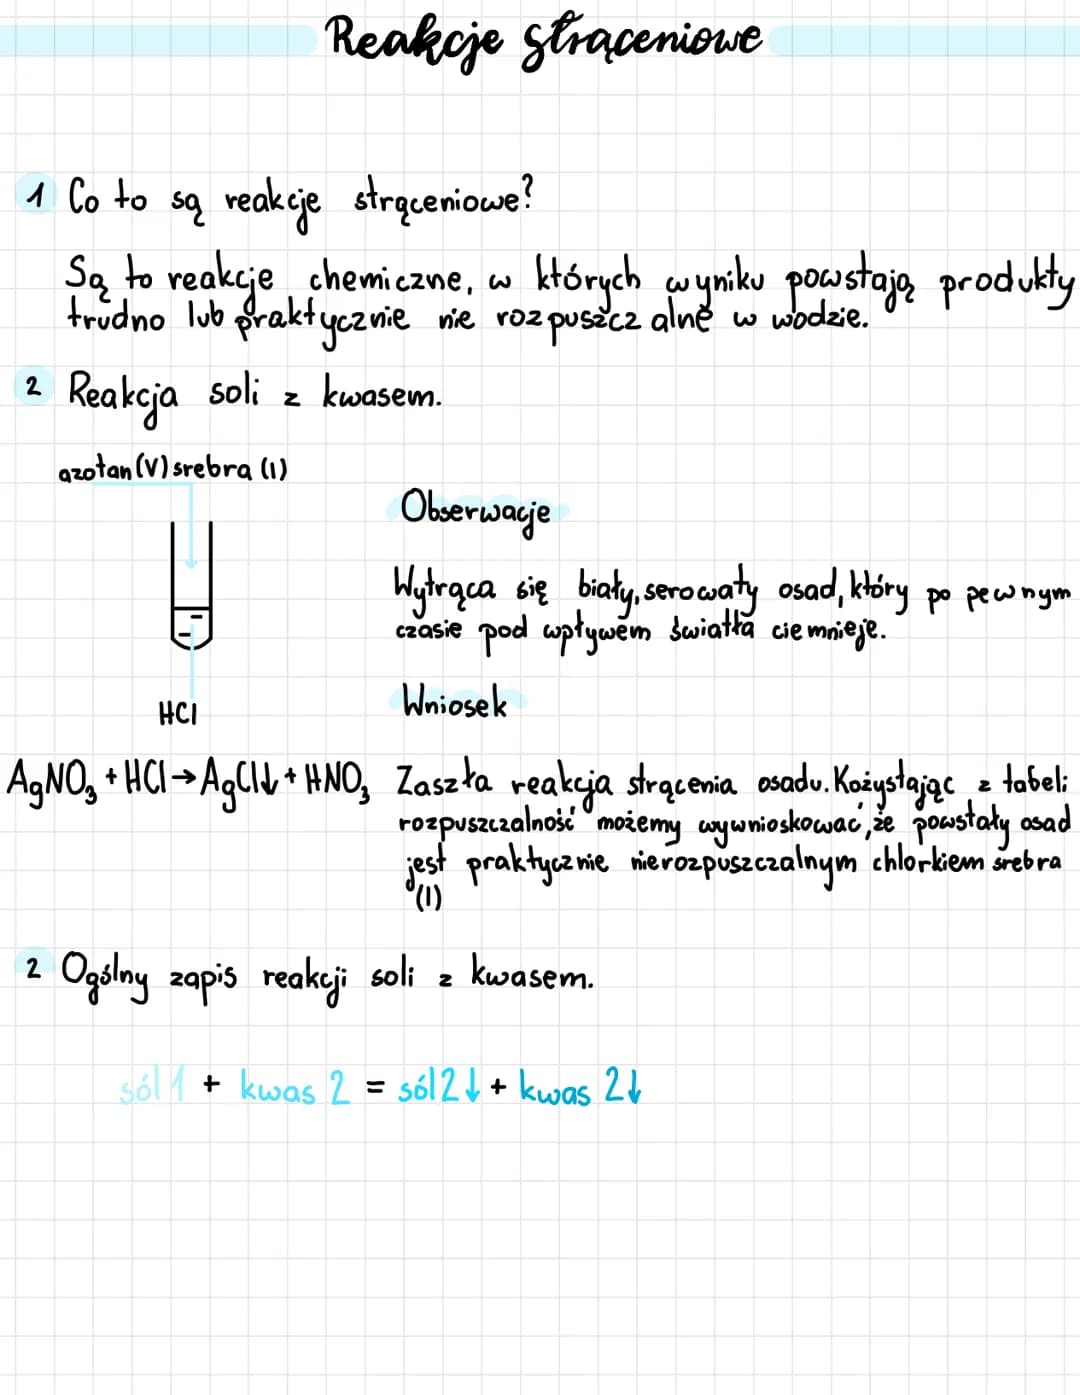 Reakcje strąceniowe
1 Co to są reakcje strąceniowe?
Są to reakcje chemiczne, w których wyniku powstają produkty
trudno lub praktycznie nie rozpuszczalne w wodzie.
2 Reakcja soli z kwasem.
azotan (V) srebra (I)
Obserwacje
Wytrąca się biały, serowaty osad, który po pewnym
czasie pod wpływem światła ciemnieje.
HCl
Wniosek
AgNO₃ + HCl → AgCl↓ + HNO₃
Zaszła reakcja strącenia osadu. Kożystając z tabeli
rozpuszczalność możemy wywnioskować, że powstały osad
jest praktycznie nierozpuszczalnym chlorkiem srebra
(I)
2 Ogólny zapis reakcji soli z kwasem.
sól 1 + kwas 2 = sól 2↓ + kwas 2↓